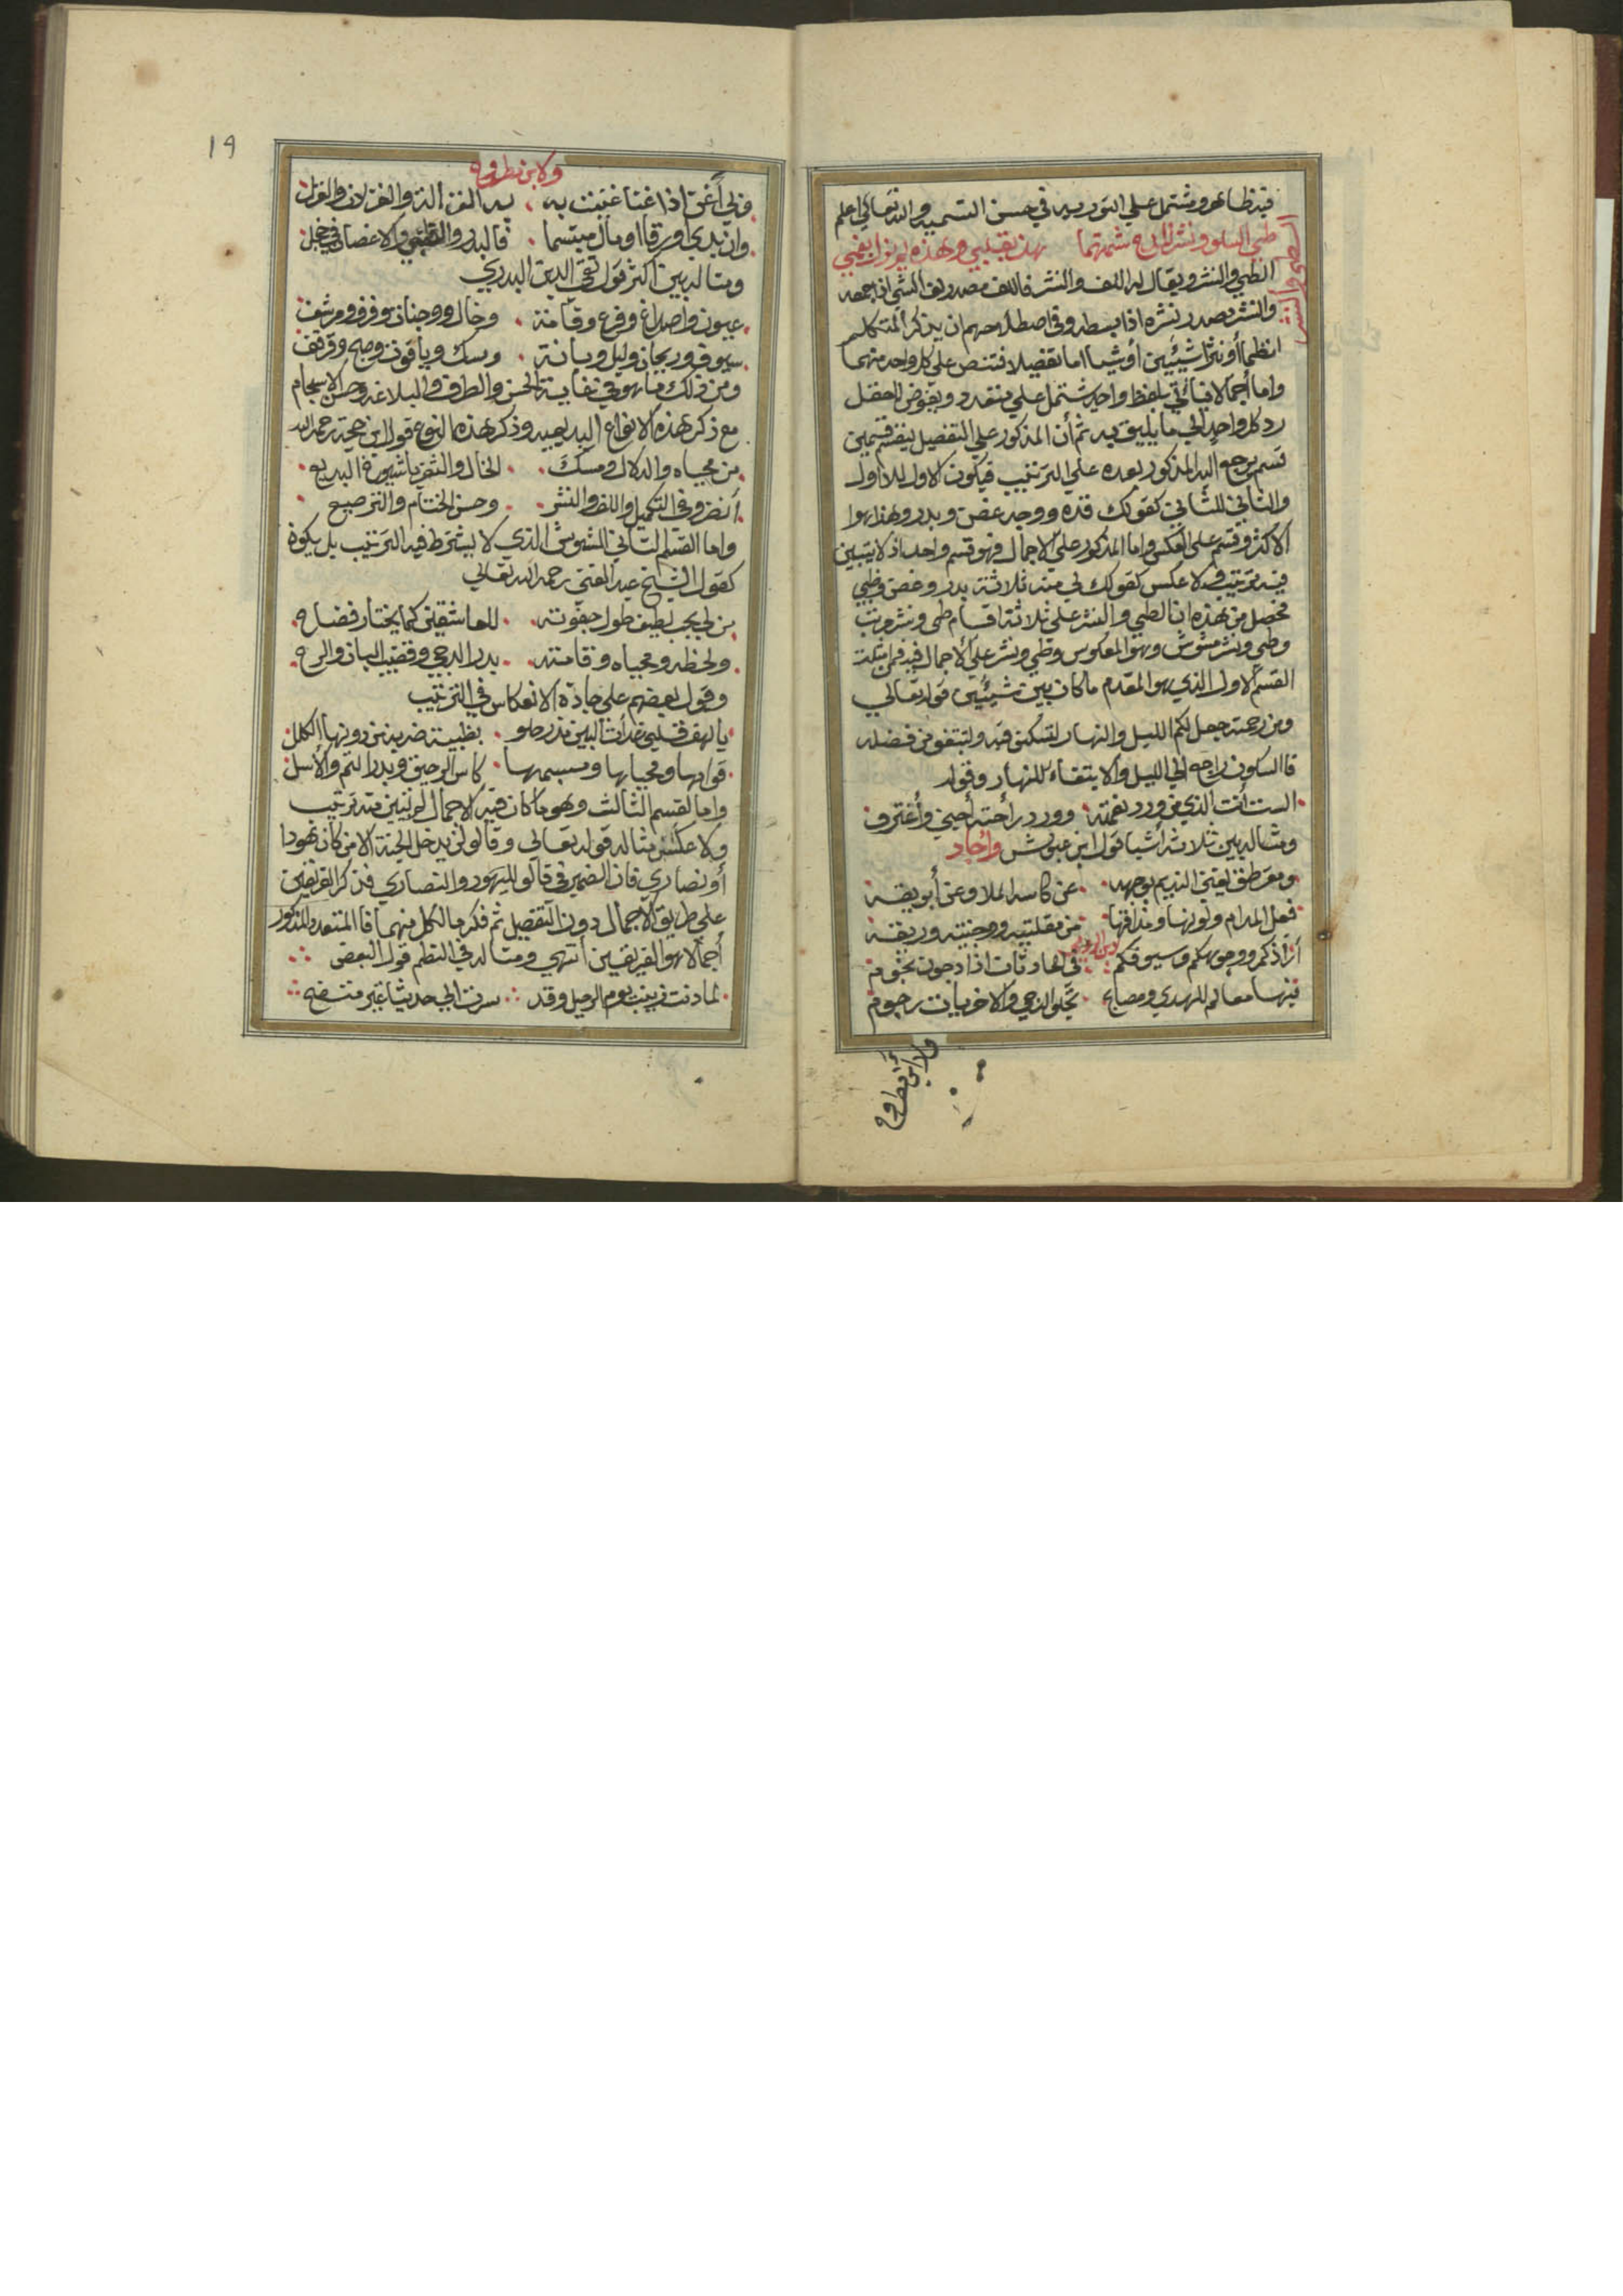 فيه ظاهر ويشتمل علي التوريه في حسن التسميه والله تعالي اعلم
طي السلو ونشر
بقلبي وهذه
الطي والنشر
الطي والنشر ويقال له اللف والنشر فاللف مصدر لف الشي اذا جمعه
والنشر مصدر نشره اذا بسطه وفي اصطلاحهم ان يذكر المتكلم
انظما أو نثرا شيئين أو شيا اما تفضيلا فتنص علي كل واحد منهما
واما أجمالا فيأتي بلفظ واحد يشتمل علي متعدد ويفوض للعقل
رد كل واحد الي ما يليق به ثم أن المذكور علي التفصيل ينقسم قسمين
قسم يرجع الي المذكور بعده علي الترتيب فيكون الاول للاول
والثاني للثاني كقولك قده ووجهه غصن وبدر وهذا هوا
الاكثر وقسم علي العكس واما المذكور علي الاجمال فهو قسم واحد اذ لا يتبين
فيه ترتيب ولا عكس كقولك لي منه ثلاثة بدر وغصن وظبي
فحصل من هذه ان الطي والنشر علي ثلاثة اقسام طي ونشر مرتب
وطي ونشر مشوش وهو المعكوس وطي ونشر علي الاجمال فيه فمن امثلت
القسم الاول الذي هو المقدم ماكان بين شيئين قوله تعالي
ومن رحمته جعل لكم الليل والنهار لتسكنو فيه ولتبتغو من فضله
فاالسكون راجع الي الليل والابتغاء للنهار وقوله
الست أنت الذي من ورد نعمته وورد راحته أجني وأغترف
ومثاله بين ثلاثة أشيا قول ابن حيوش واجاد
ومقرطق يغني النديم بوجهه عن كاسه الملا وعن أبريقه
فعل المدام ولونها ومذاقها من مقلتيه ووجنتيه وريقه
ابن الرومي
أرآذكم ووجوهكم وسيوفكم في الحادثات اذا دجون نجوم
فيها معالم للهدي ومصابح تجلو الدجي والاخريات رجوم
ولابن مطروح
ولابن مطروح
19
ولي أغن اذا غنا غنيت به عن الغزالة والغزلان والغزل
وان بدي او رنا او مال مبتسما فالبدر والظبي والاغصان في خجل
ومثاله بين اكثر قول تقي الدين البدري
عيون واصداغ وفرع وقامة وخال ووجنات وفرق ومرشف
سيوف وريحان وليل وبانة ومسك وياقوت وصبح وقرقف
ومن ذلك ما هو في غاية الحسن والظرف والبلاغه وحسن الانسجام
مع ذكر هذه الانواع البديعيه وذكر هذه النوع قول ابن حجة رحمه الله
من محياه والدلال ومسك الخال والثغر يا شيوخ البديع
أنظرو في التكميل واللف والنشر وحسن الختام والترصيع
واما القسم الثاني المشوش الذي لا يشترط فيه الترتيب بل يكون
كقول الشيخ عبد الغني رحمه الله تعالي
من لي بحب لطيف طول جفوته للعاشقين كما يختار فضاح
ولحظه ومحياه وقامته بدر الدجي وقضيب البان والراح
وقول بعضهم علي جادة الانعكاس في الترتيب
يا لهف قلبي غدات البين مذ رحلو بظبية ضربت من دونها الكلل
قوامها ومحياها ومبسمها كاس الرحيق وبدر التم والأسل
واما لقسم الثالث وهو ماكان فيه الاجمال لم يتبين منه ترتيب
ولا عكس مثاله قوله تعالي وقالو لن يدخل الجنة الا من كان هودا
أو نصاري فان الضمير في قالو لليهود والنصاري فذكر الفريقين
علي طريق الاجمال دون التفصيل ثم ذكر ما لكل منهما فا المتعدد المذكور
أجمالا هو الفريقين انتهي ومثاله في النظم قول البعض
لما دنت زينب يوم الرحيل وقد سرت الي حديثا غير متضح